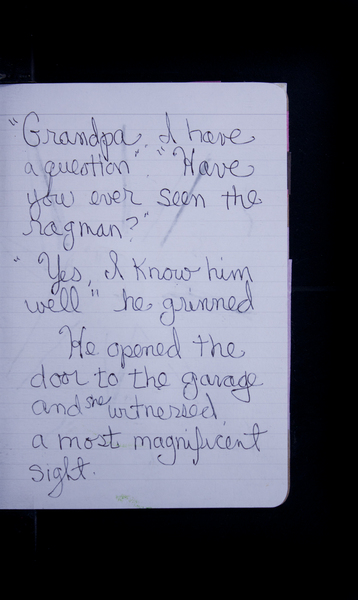 "Grandpa, I have
a question". "Have
you ever seen the
ragman?"
"Yes, I know him
well" he grinned
He opened the
door to the garage
and she witnessed
a most magnificent
sight.